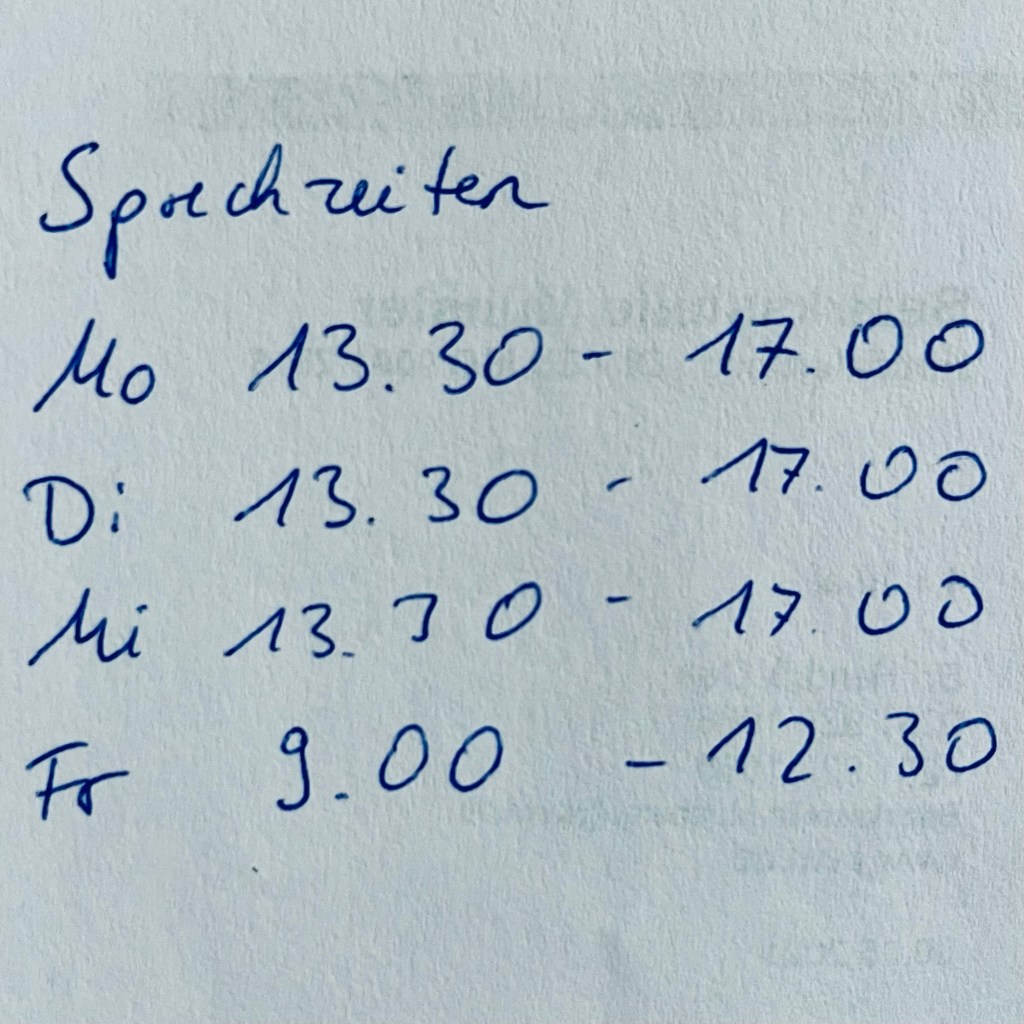 Sprechzeiten
Mo 13.30 - 17.00
Di 13.30 - 17.00
Mi 13.30 - 17.00
Fr 9.00 - 12.30